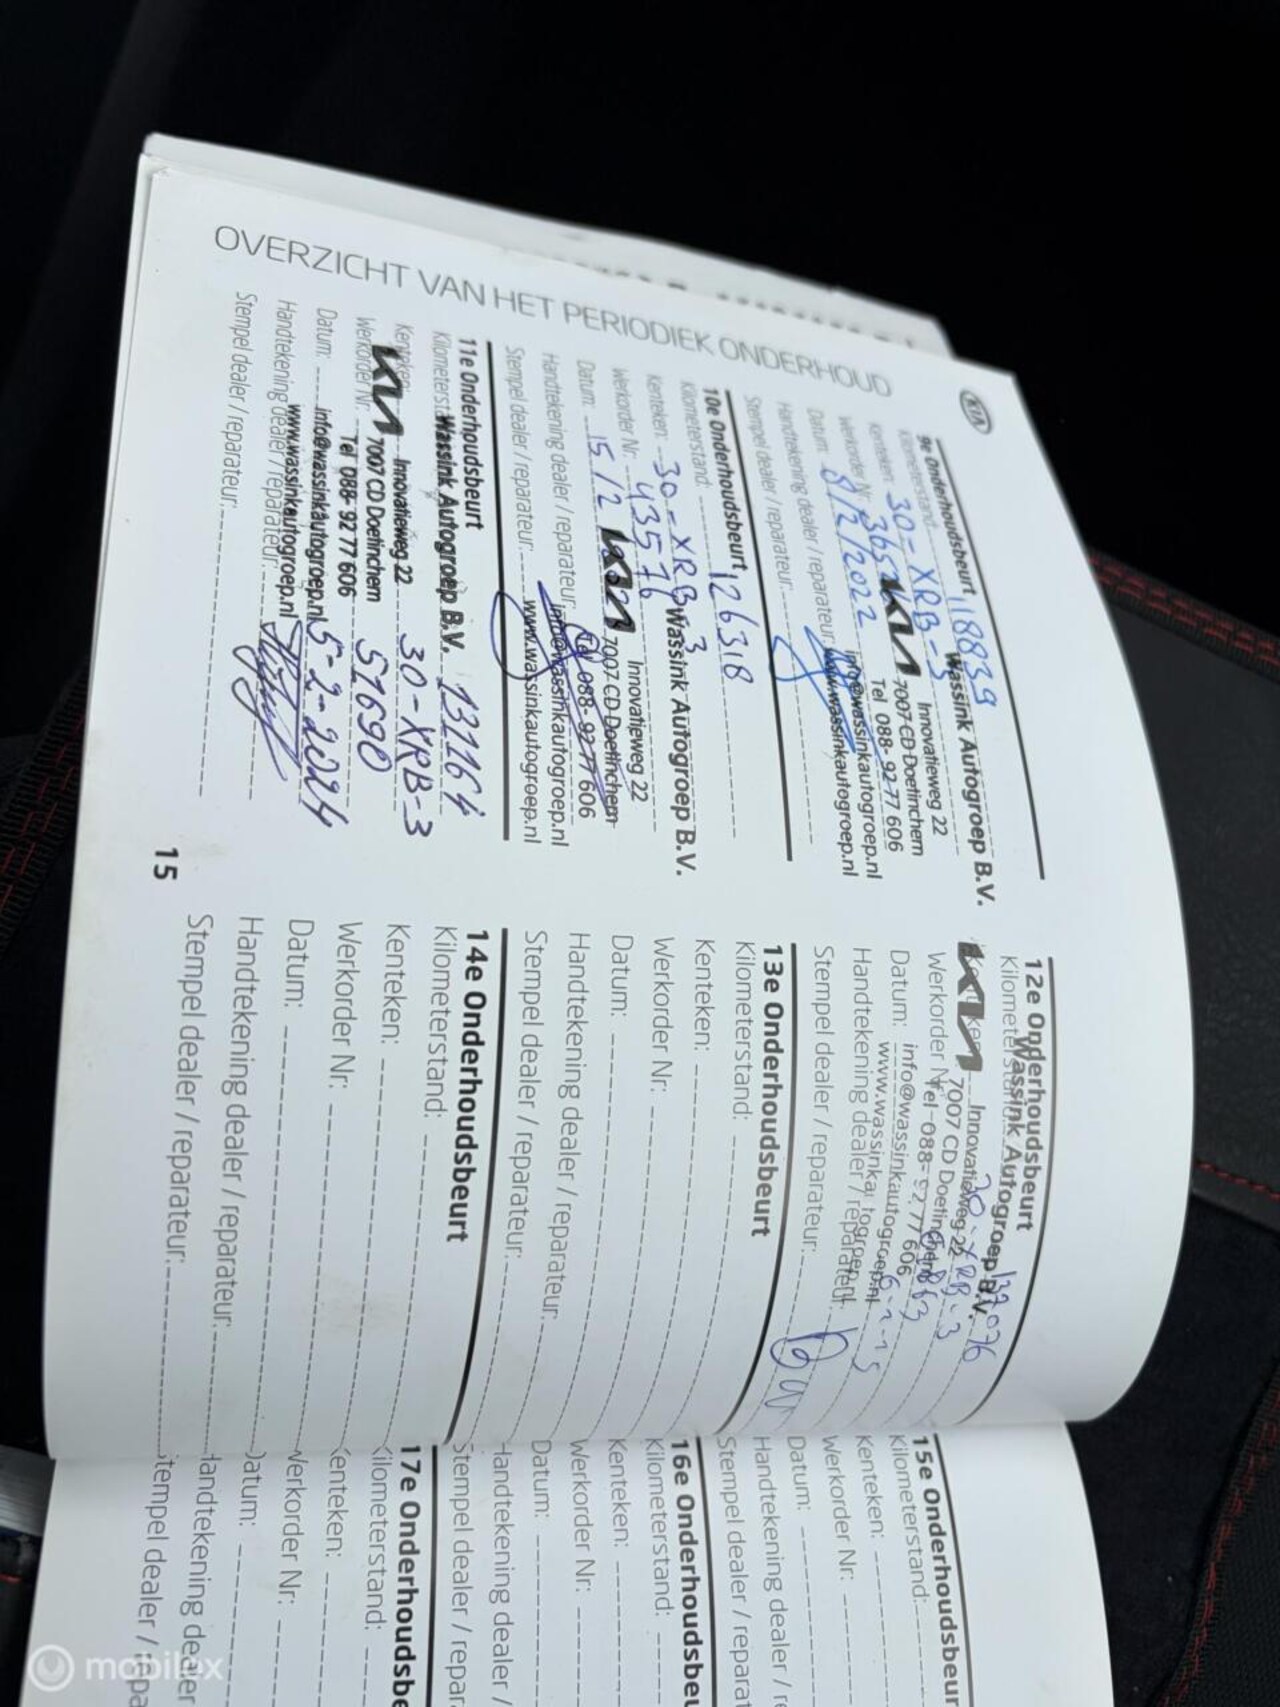 OVERZICHT VAN HET PERIODIEK ONDERHOUD
KIA
9e Onderhoudsbeurt
Kilometerstand: 118839
Wassink Autogroep B.V.
Kenteken: 30-XRB-3
Innovatieweg 22
7007 CD Doetinchem
Werkorder Nr.
Tel 088- 92 77 606
Datum: 8/2/2022
info@wassinkautogroep.nl
www.wassinkautogroep.nl
Handtekening dealer / reparateur:
Stempel dealer / reparateur:
10e Onderhoudsbeurt
Kilometerstand: 126318
Wassink Autogroep B.V.
Kenteken: 30-XRB-3
Innovatieweg 22
KIA 7007 CD Doetinchem
Werkorder Nr: 43576
Tel 088- 92 77 606
Datum: 15/2
info@wassinkautogroep.nl
www.wassinkautogroep.nl
Handtekening dealer / reparateur:
Stempel dealer / reparateur:
11e Onderhoudsbeurt
Kilometerstand 131164
Wassink Autogroep B.V.
Kenteken: 30-XRB-3
Innovatieweg 22
KIA 7007 CD Doetinchem
Werkorder Nr: 51690
Tel 088- 92 77 606
Datum: 5-2-2024
info@wassinkautogroep.nl
www.wassinkautogroep.nl
Handtekening dealer / reparateur:
Stempel dealer / reparateur:
15
12e Onderhoudsbeurt
Kilometerstand: 137076
Wassink Autogroep B.V.
30-XRB-3
Innovatieweg 22
KIA 7007 CD Doetinchem
Werkorder Nr
Tel 088- 92 77 606
Datum:
info@wassinkautogroep.nl
www.wassinkautogroep.nl
Handtekening dealer / reparateur:
Stempel dealer / reparateur:
13e Onderhoudsbeurt
Kilometerstand:
Kenteken:
Werkorder Nr:
Datum:
Handtekening dealer / reparateur:
Stempel dealer / reparateur:
14e Onderhoudsbeurt
Kilometerstand:
Kenteken:
Werkorder Nr:
Datum:
Handtekening dealer / reparateur:
Stempel dealer / reparateur:
15e Onderhoudsbeur
Kilometerstand:
Kenteken:
Werkorder Nr:
Datum:
Handtekening dealer / re
Stempel dealer / reparat
16e Onderhoudsbeu
Kilometerstand:
Kenteken:
Werkorder Nr:
Datum:
Handtekening dealer /
Stempel dealer / repar
17e Onderhoudsbe
Kilometerstand:
Kenteken:
Werkorder Nr:
Datum:
Handtekening dealer
Stempel dealer / repa
mobilex